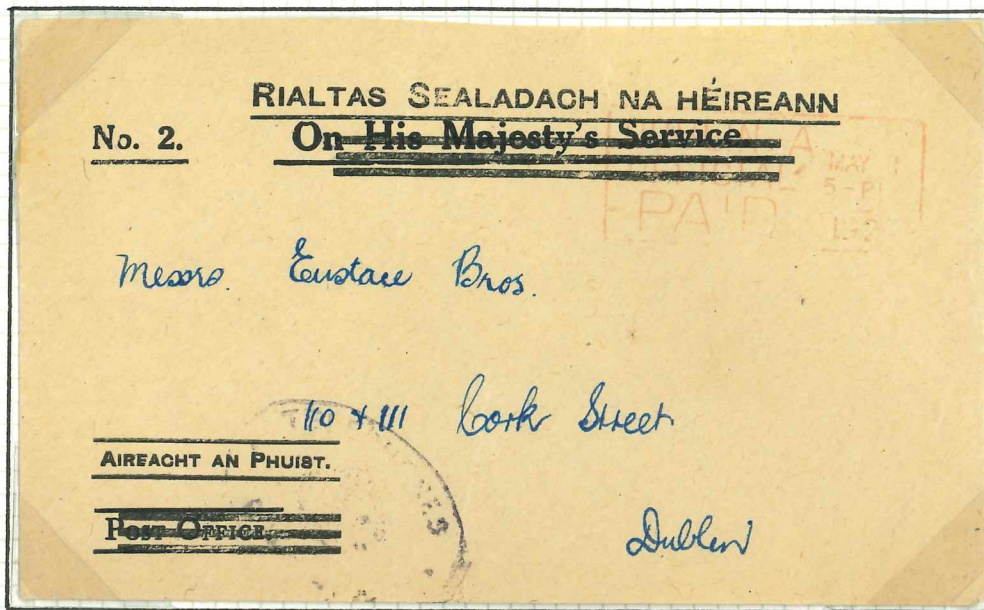 RIALTAS SEALADACH NA HÉIREANN
No. 2. On His Majesty's Service.
MAY
5-P
PAID
Messrs. Eustace Bros.
110 + 111 Cork Street
AIREACHT AN PHUIST.
POST OFFICE.
Dublin